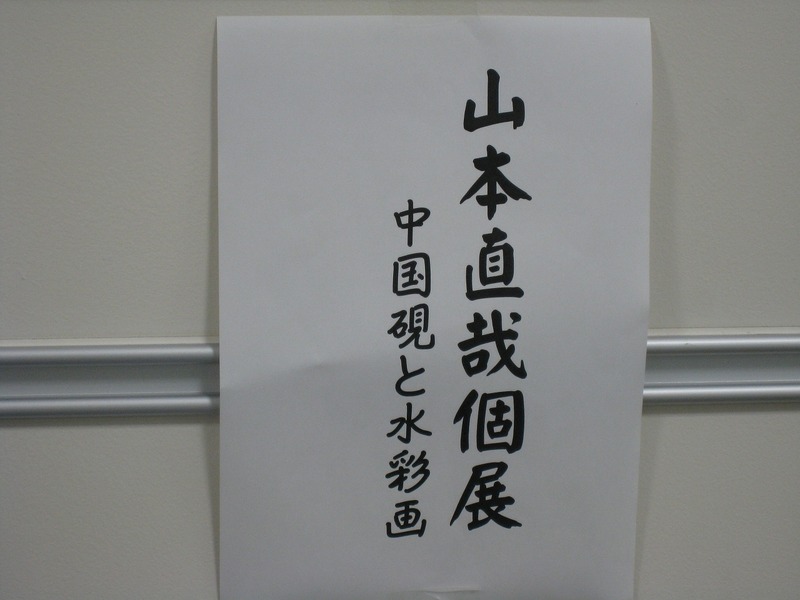 山本直哉個展
中国硯と水彩画